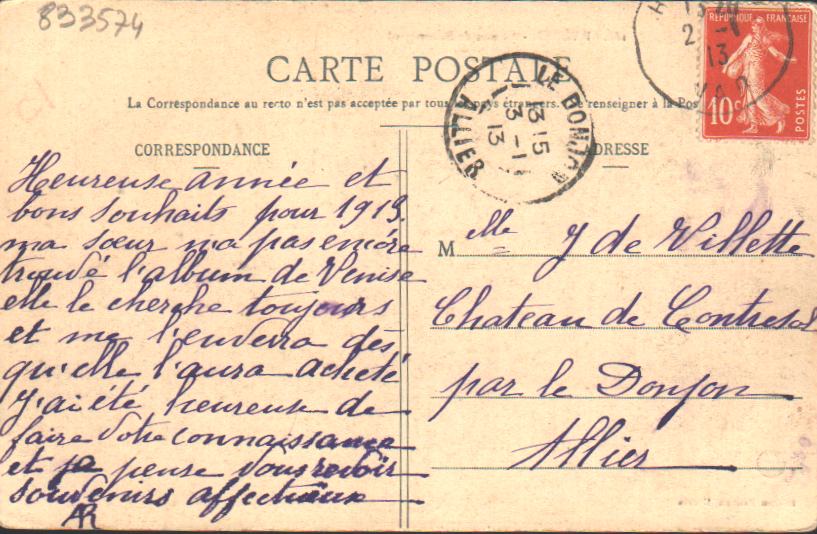 833574
CARTE POSTALE
La Correspondance au recto n'est pas acceptée par tous les pays étrangers. Se renseigner à la Pos
RÉPUBLIQUE FRANÇAISE
10c
POSTES
13
VAR
LE DONJON
13 15
3 - 1
13
ALLIER
CORRESPONDANCE
Heureuse année et
bons souhaits pour 1913.
ma sœur m'a pas encore
trouvé l'album de Venise
elle le cherche toujours
et me l'enverra dès
qu'elle l'aura acheté
J'ai été heureuse de
faire votre connaissance
et je pense vous revoir
souvenirs affectueux
AR
ADRESSE
Melle J de Villette
Chateau de Contresol
par le Donjon
Allier